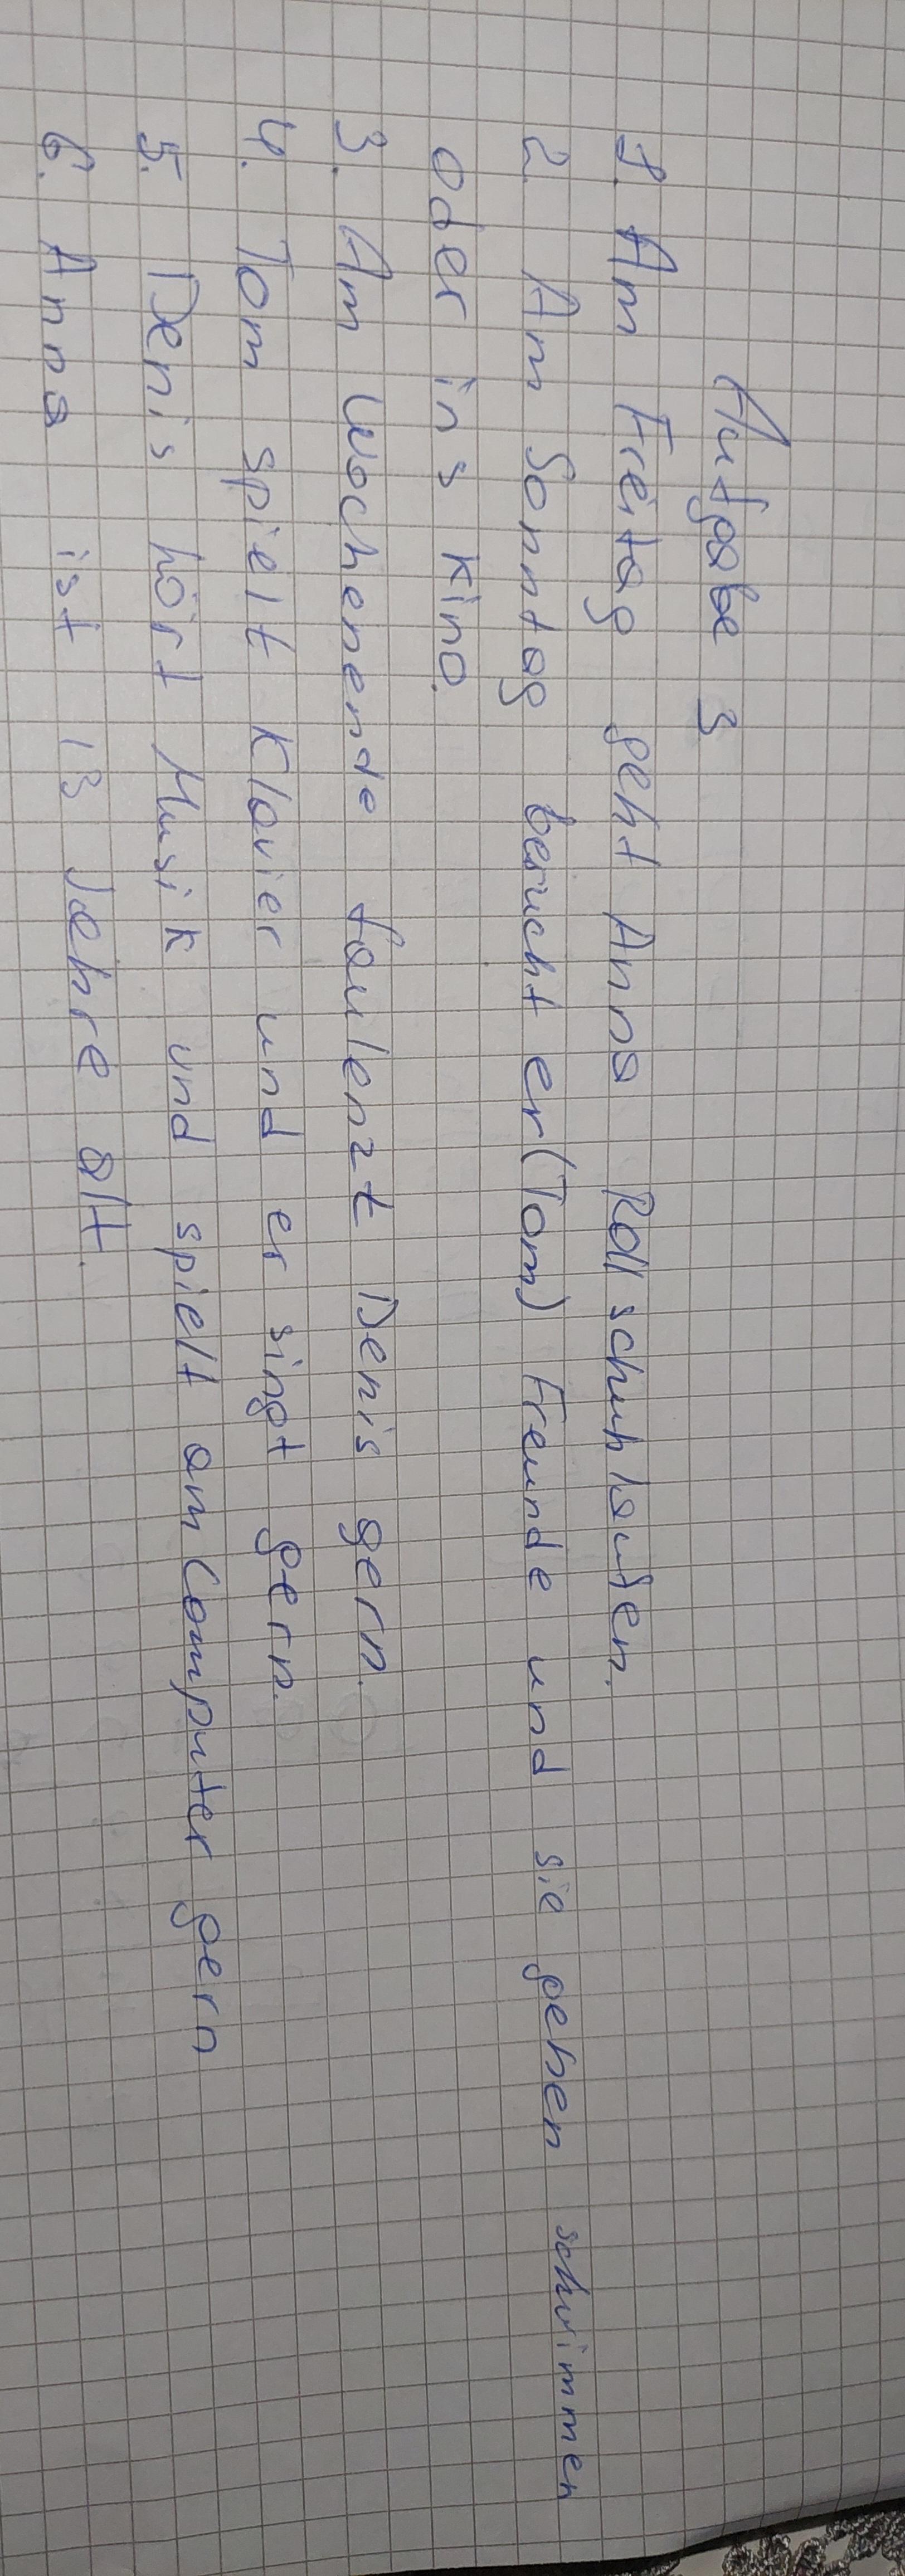 Aufgabe 3
1. Am Freitag geht Anna Rollschuhlaufen.
2. Am Sonntag besucht er(Tom) Freunde und sie gehen schwimmen
oder ins Kino.
3. Am Wochenende faulenzt Denis gern.
4. Tom spielt Klavier und er singt gern.
5. Denis hört Musik und spielt am Computer gern
6. Anna ist 13 Jehre alt.